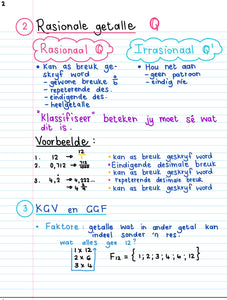 2
② Rasionale getalle ℚ
Rasionaal ℚ
Irrasionaal ℚ'
• Kan as breuk ge-
skryf word
- gewone breuke a/b
- repeterende des.
- eindigende des.
- heelgetalle
• Hou net aan
- geen patroon
- eindig nie.
"Klassifiseer" beteken jy moet sê wat
dit is.
Voorbeelde:
1. 12 → 12/1 • kan as breuk geskryf word
2. 0,712 → 712/1000 • Eindigende desimale breuk
• kan as breuk geskryf word
3. 4,2̇ → 4,222... • repeterende desimale breuk
→ 4 2/9 • kan as breuk geskryf word
③ KGV en GGF
• Faktore: getalle wat in ander getal kan
indeel sonder 'n res.
wat alles gee 12?
1 x 12
2 x 6
3 x 4
F₁₂ = { 1; 2; 3; 4; 6; 12 }